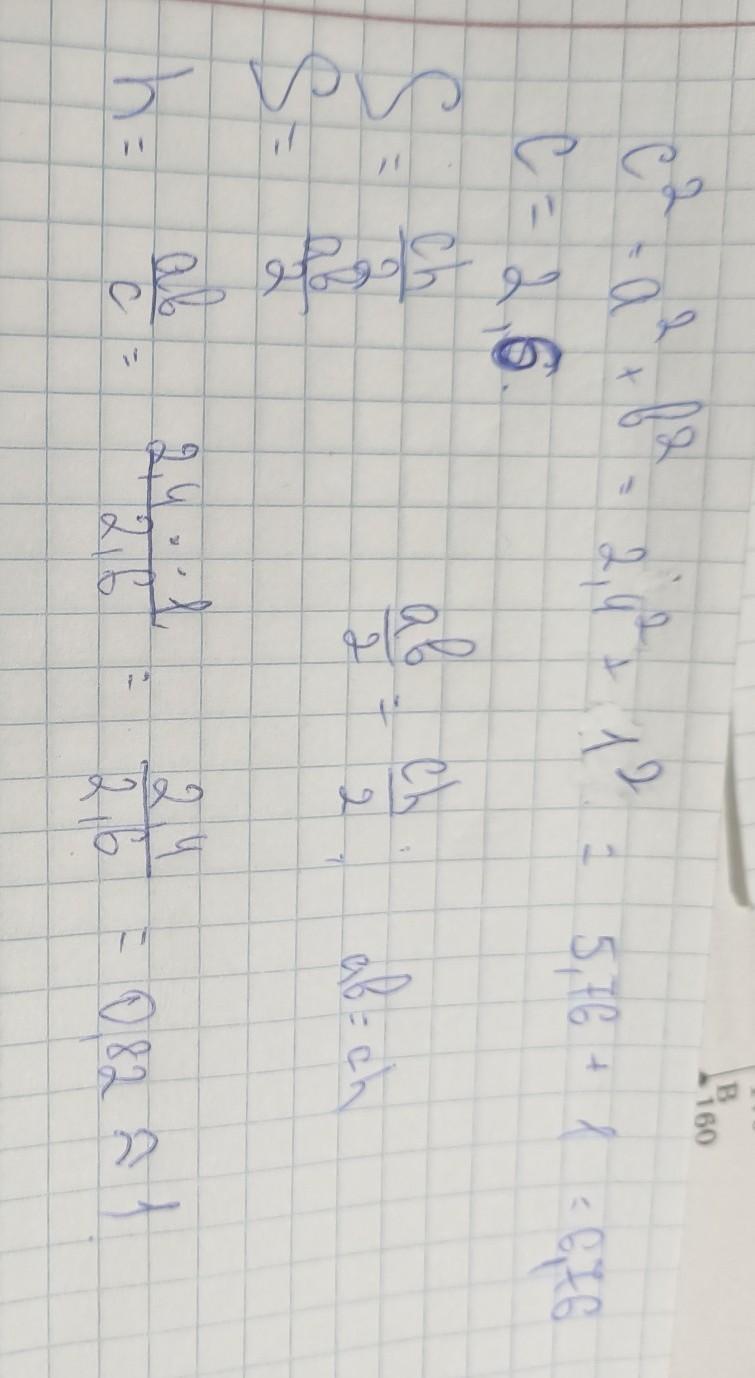 c² = a² + b² = 2,4² + 1² = 5,76 + 1 = 6,76
c = 2,6.
S = ch/2
ab/2 = ch/2, ab = ch
S = ab/2
h = ab/c = 2,4 · 1/2,6 = 2,4/2,6 = 0,82 ≈ 1
B
160